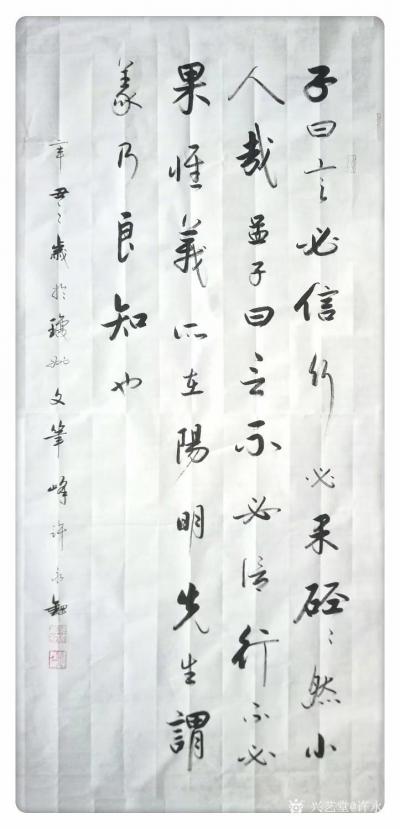 子曰言必信行必果硁〻然小
人哉孟子曰言不必信行不必
果惟義所在陽明先生謂
義乃良知也
辛丑之歲於瓊州文筆峰許永
兴艺堂@许永